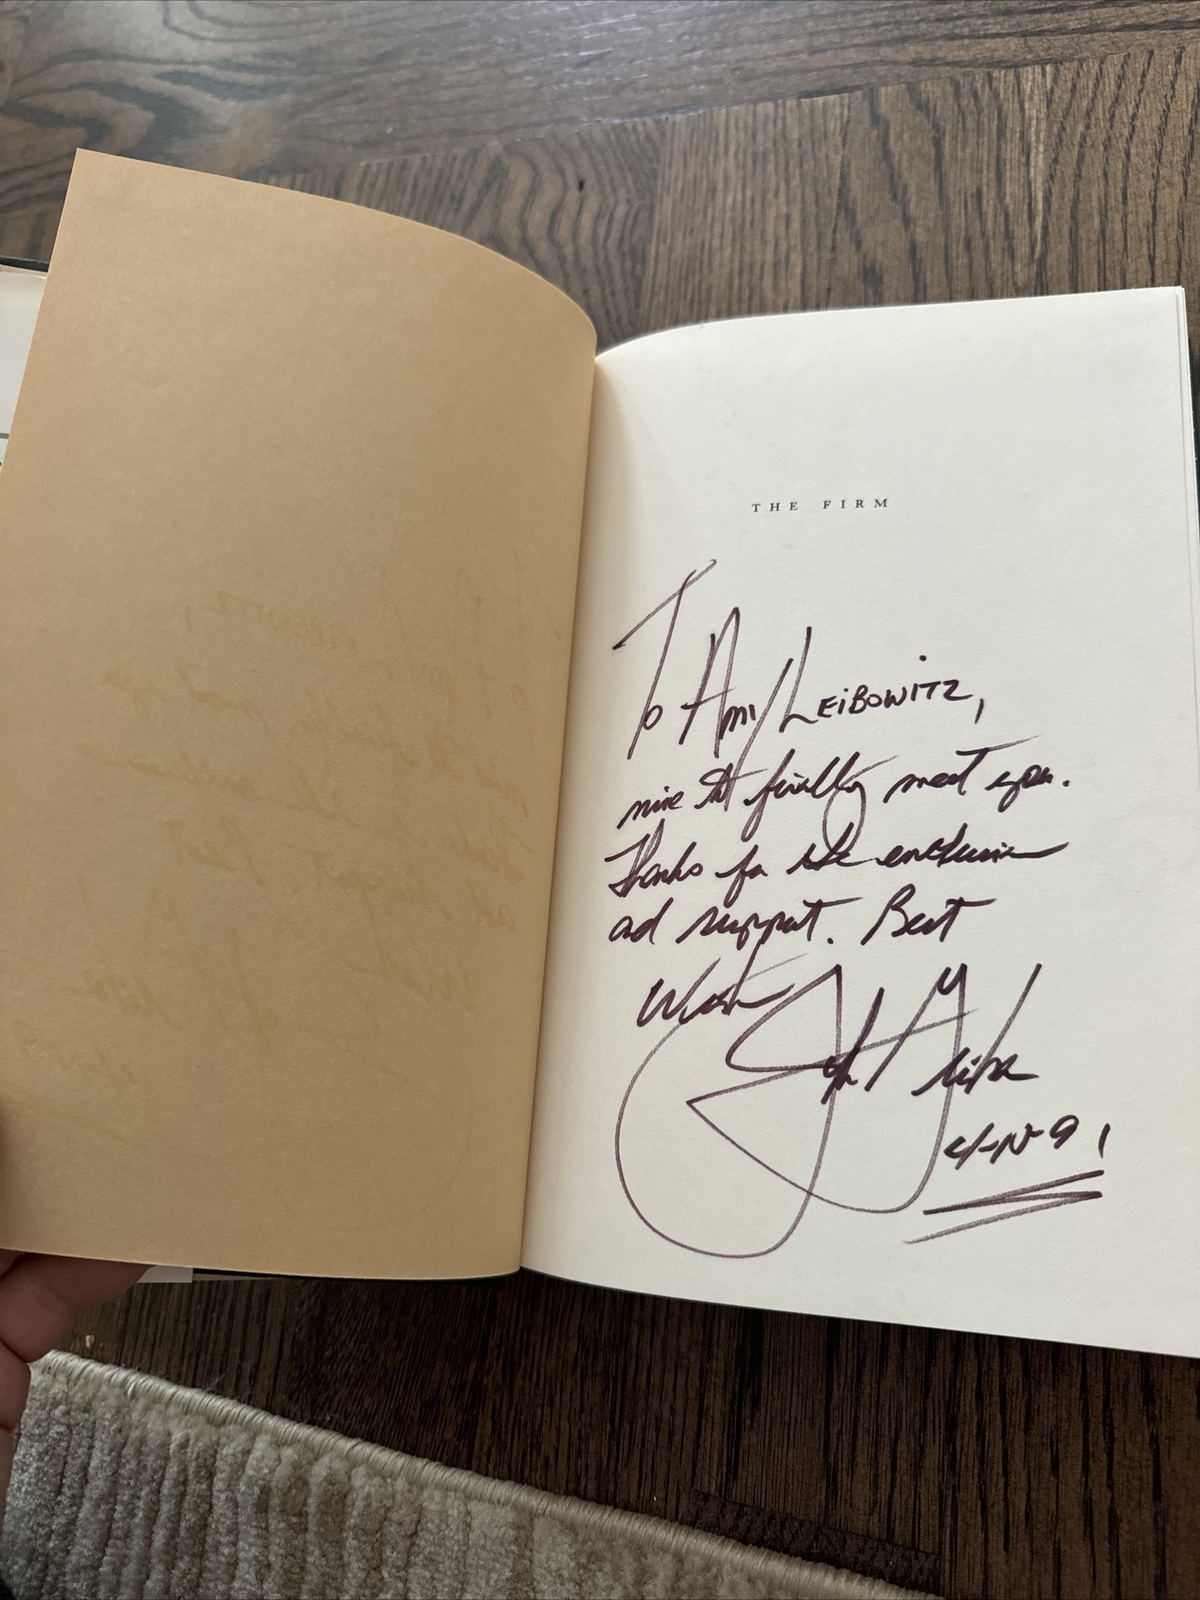 THE FIRM
To Amy Leibowitz,
nice to finally meet you.
Thanks for the enthusiasm
and support. Best
Wishes
John Grisham
91